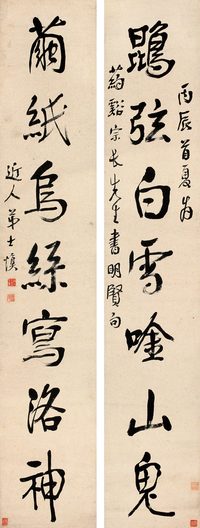 丙辰首夏為
谿宗長先生書明賢句
鵾弦白雪唫山鬼
繭紙烏絲寫洛神
近人弟士慎